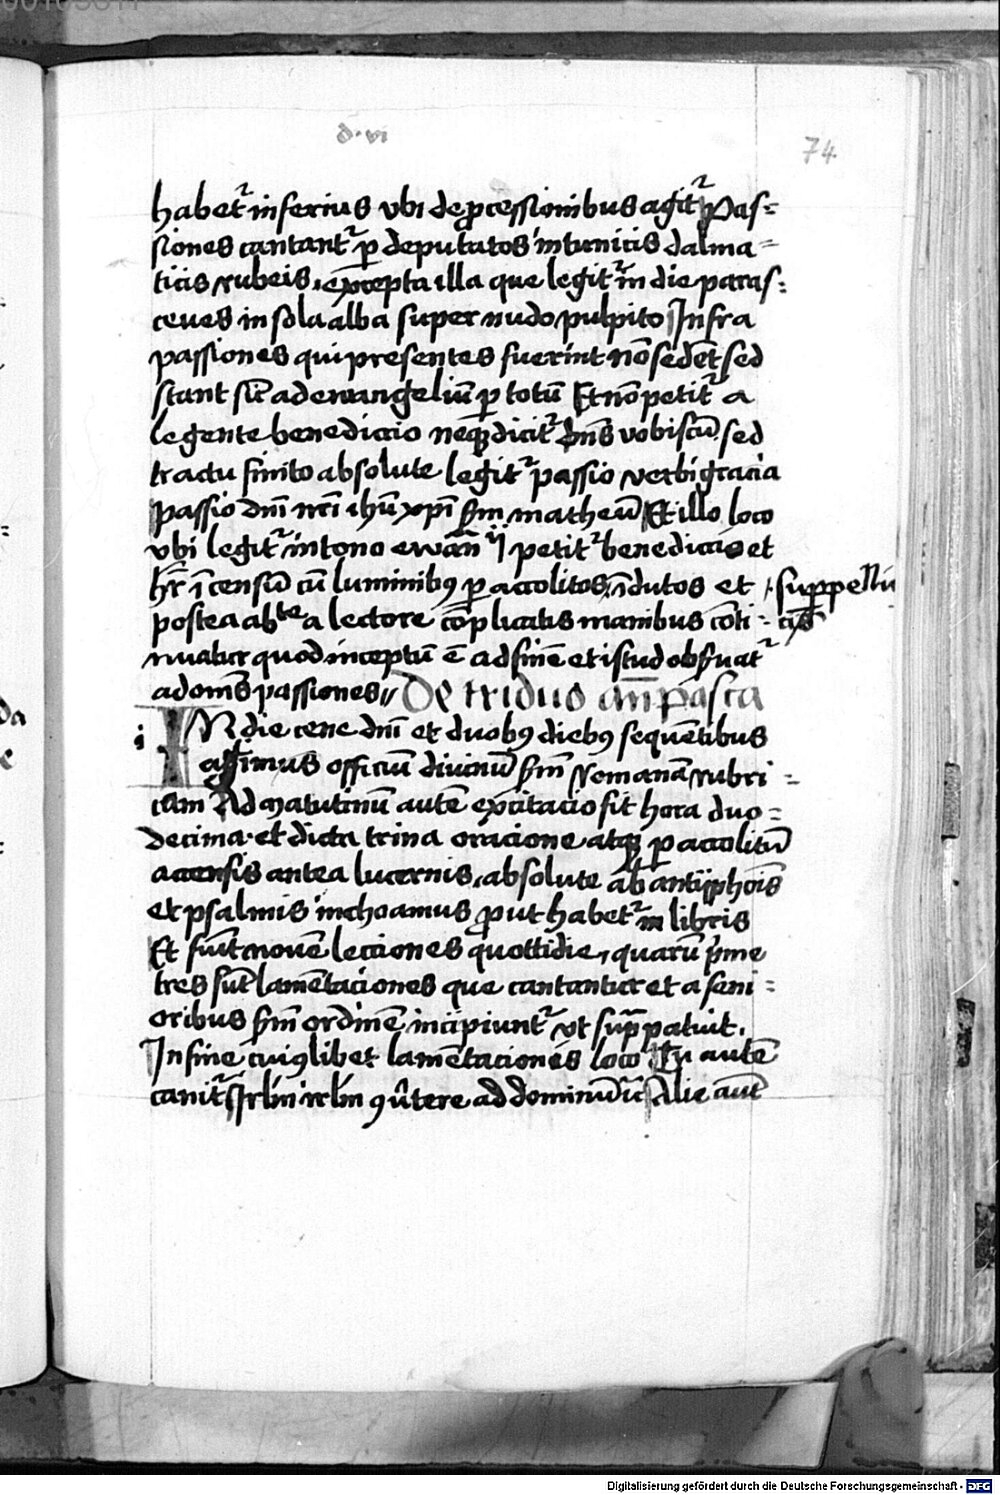 d·vi
74
habet᷑ inferius vbi de ꝓcessionibus agit᷑ Pas⸗
siones cantant᷑ ꝑ deputatos in tunicis dalma⸗
ticis rubeis, excepta illa que legit᷑ in die paras⸗
ceues in sola alba super nudo pulpito Infra
passiones qui presentes fuerint nō sedēt sed
stant sic̄ ad ewangeliū ꝑ totū Et nō petit᷑ a
legente benediccio neqꝫ dicit᷑ dn̄s vobiscū sed
tractu finito absolute legit᷑ passio verbi gracia
passio dn̄i nr̄i ihū xp̄i sm̄ matheū Et illo loco
vbi legit᷑ in tono ewān petit᷑ benediccio et
hr̄ īcensū cū luminibꝰ ꝑ accolitos īdutos et suppellici
postea abͭᵉ a lectore cōplicatis manibus cōti⸗ cijs
nuatur quod inceptū ē ad finē et istud obẜuat᷑
ad om̄s passiones De triduo an̄ pasca
i IN die cene dn̄i et duobꝰ diebꝰ sequētibus
agimus officiū diuinū sm̄ Romanā rubri⸗
cam Ad matutinū autē excitacio fit hora duo⸗
decima· et dicta trina oracione atqꝫ ꝑ accolitū
accensis antea lucernis, absolute ab antiphōis
et psalmis inchoamus ꝓut habet᷑ in libris
Et sūt nouē lecciones quottidie, quarū p̄me
tres sūt lamētaciones que cantantur et a seni⸗
oribus sm̄ ordinē incipiunt᷑ vt supͣ patuit.
In fine cuiꝰlibet lamētacionis loco Tu autē
canit᷑ Jrl̄m irl̄m ꝯu̇tere ad dominū Alie aūt
Digitalisierung gefördert durch die Deutsche Forschungsgemeinschaft - DFG